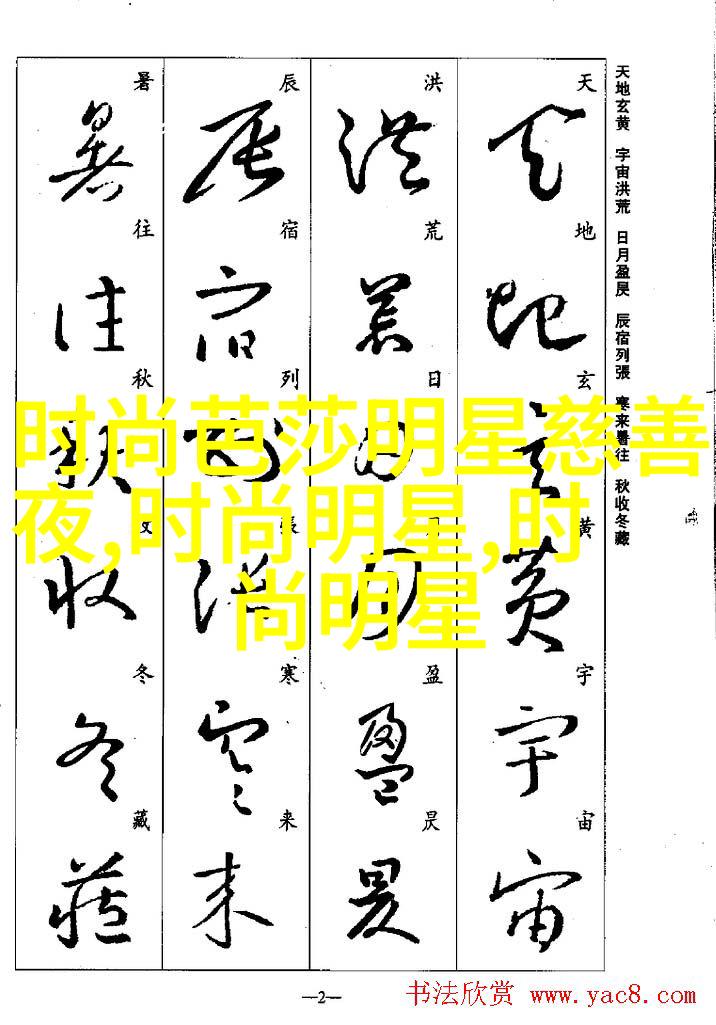 天地玄黄 宇宙洪荒 日月盈昃 辰宿列張 寒来暑往 秋收冬藏
天
地
玄
黄
宇
宙
洪
荒
日
月
盈
昃
辰
宿
列
張
寒
来
暑
往
秋
收
冬
藏
时尚芭莎明星慈善
夜,时尚明星,时
尚明星
—2—
书法欣赏 www.yac8.com